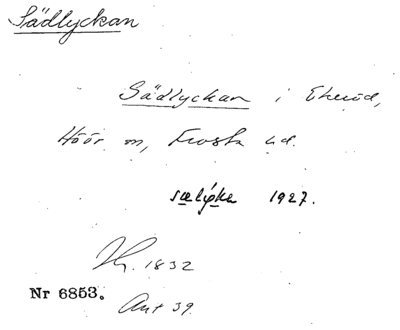 Sädlyckan
Sädlyckan i Ekeröd,
Höör sn, Frosta hd.
1927.
1832
Nr 6853.
Ant 39.